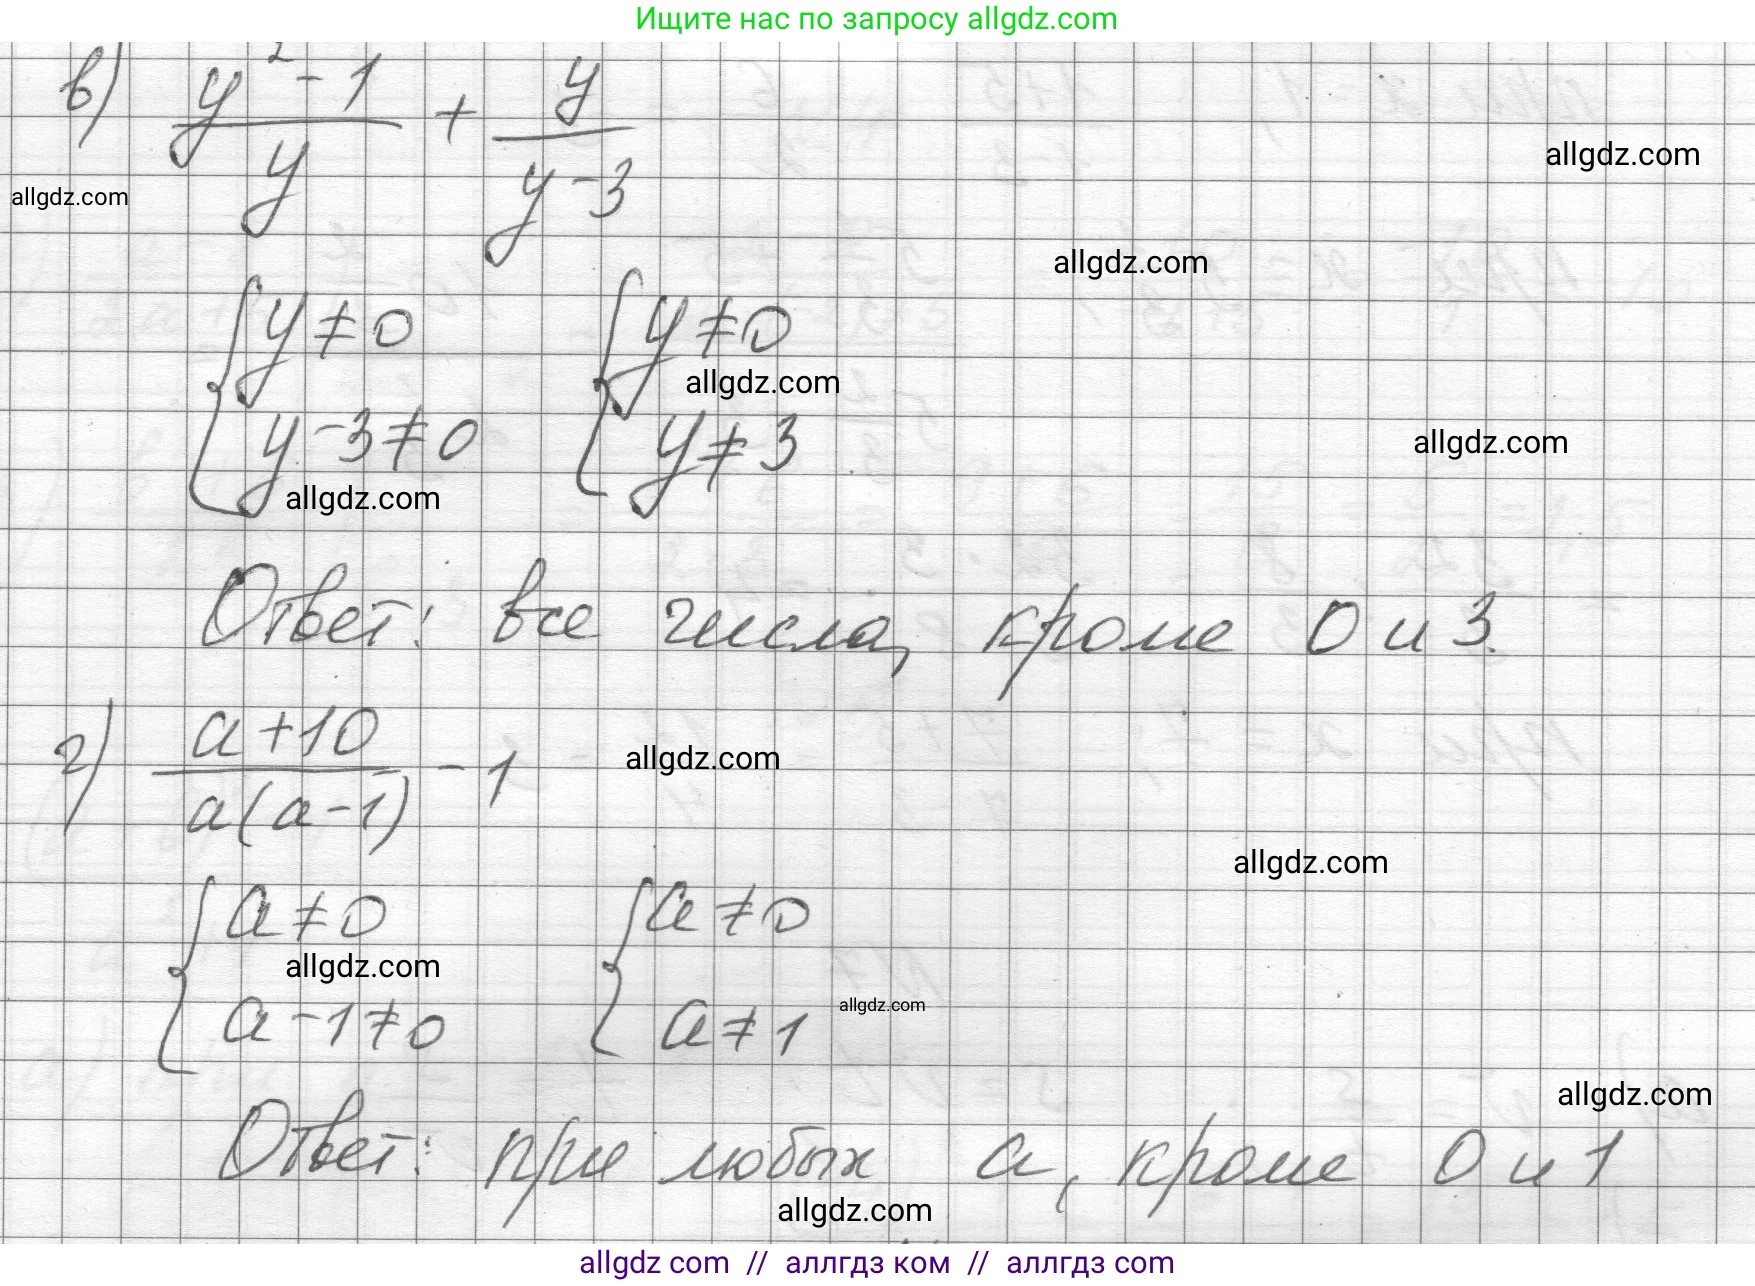 Ищите нас по запросу allgdz.com
в) (y² - 1)/y + y/(y - 3)
allgdz.com
allgdz.com
allgdz.com
{ y ≠ 0 { y ≠ 0
allgdz.com
{ y - 3 ≠ 0 { y ≠ 3
allgdz.com
allgdz.com
Ответ: все числа, кроме 0 и 3.
г) (a + 10)/(a(a - 1)) - 1
allgdz.com
allgdz.com
{ a ≠ 0 { a ≠ 0
allgdz.com
allgdz.com
{ a - 1 ≠ 0 { a ≠ 1
allgdz.com
Ответ: при любых a, кроме 0 и 1
allgdz.com
allgdz.com // аллгдз ком // аллгдз.com